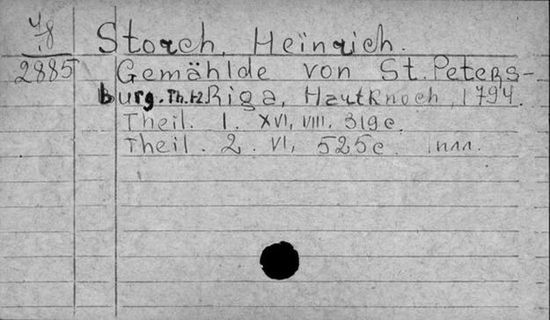 78 Storch, Heinrich.
2885 Gemählde von St. Peters-
burg. Th. 1-2 Riga, Hartknoch, 1794.
Theil. 1. XVI, VIII. 319 c.
Theil. 2. VI, 525 c. илл.